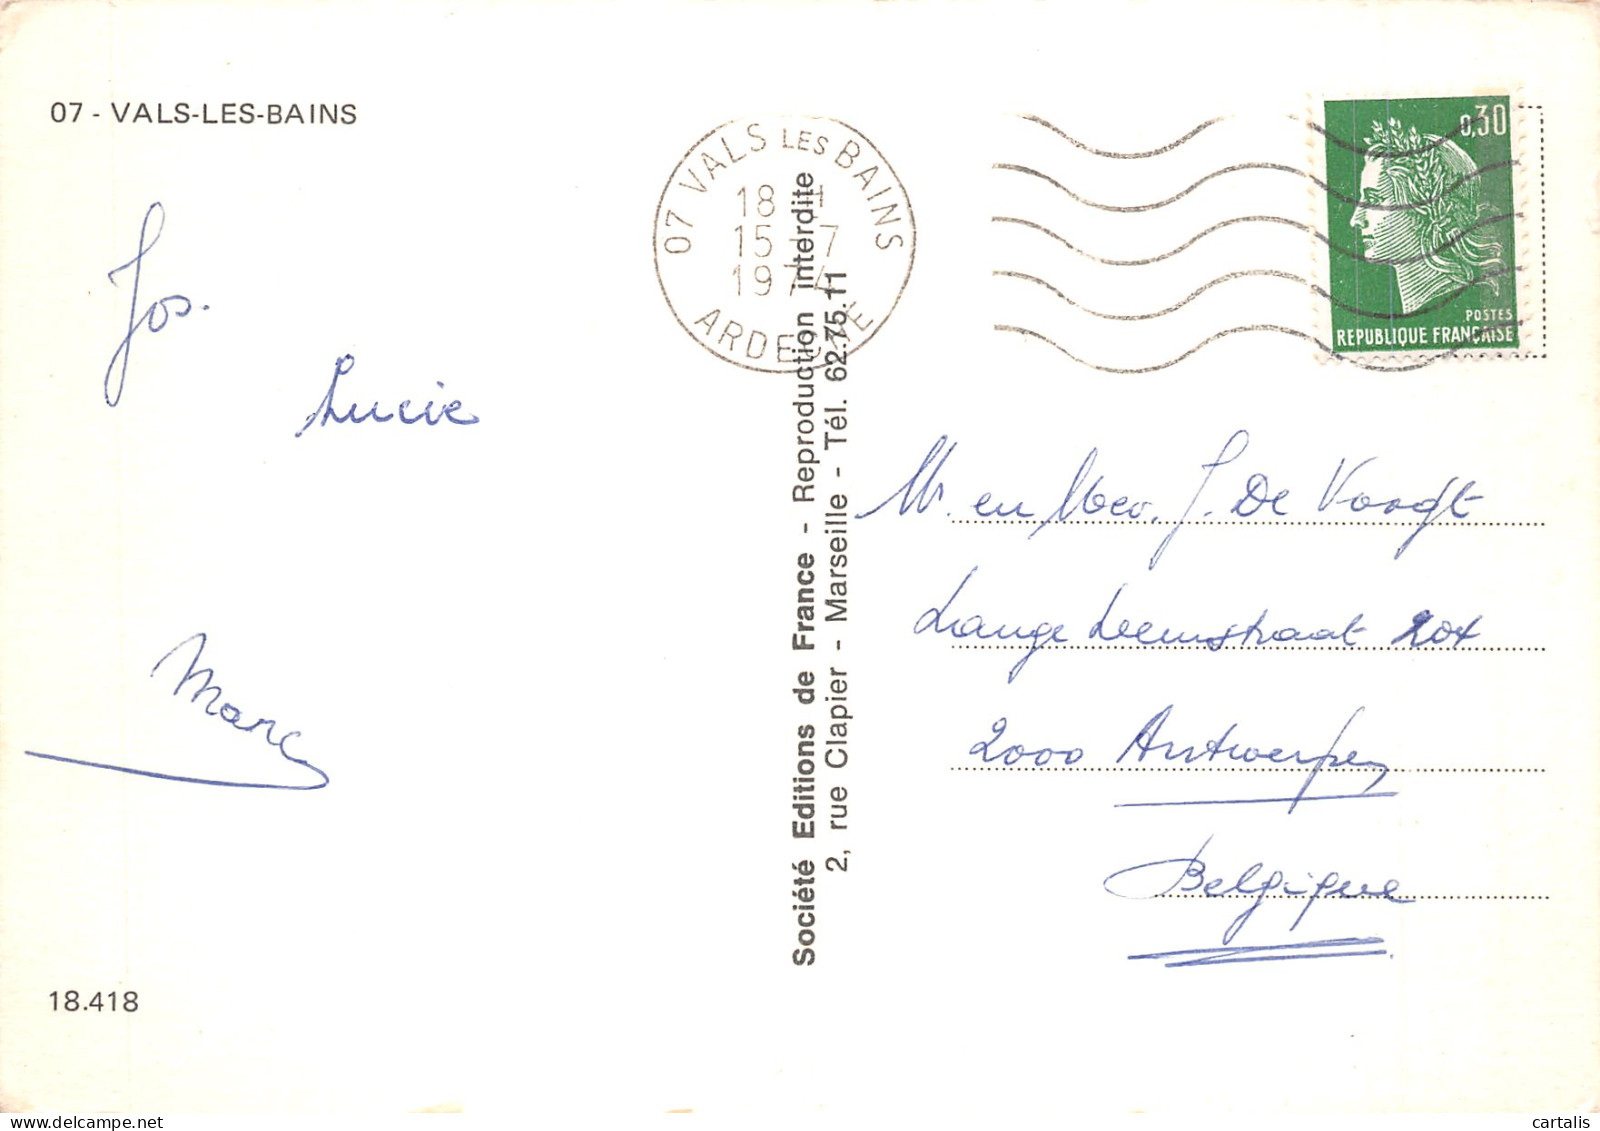 07 - VALS-LES-BAINS
07 VALS LES BAINS
18 H
15 - 7
1974
ARDECHE
0,30
POSTES
REPUBLIQUE FRANÇAISE
Jos.
Lucie
Marc
Société Editions de France - Reproduction interdite
2, rue Clapier - Marseille - Tél. 62.75.11
Mr. en Mev. J. De Voogt
Lange Leemstraat 204
2000 Antwerpen
Belgique
18.418
cartalis
delcampe.net